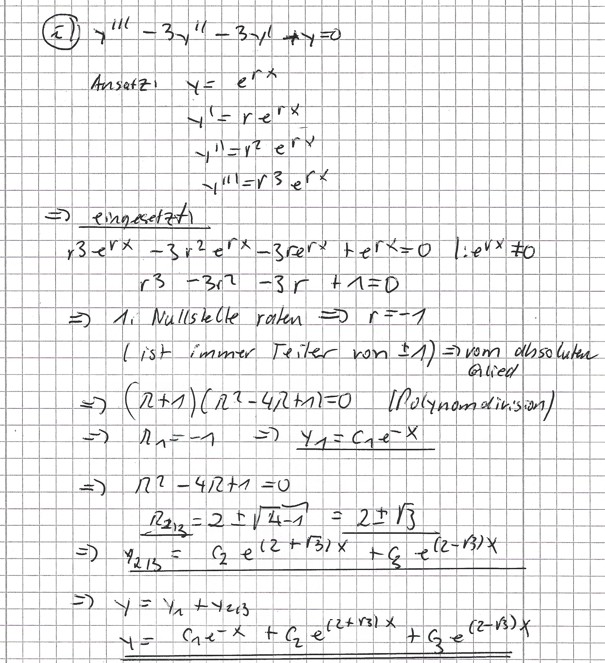 i) y''' - 3y'' - 3y' + y = 0
Ansatz: y = e^rx
y' = r e^rx
y'' = r² e^rx
y''' = r³ e^rx
=> eingesetzt:
r³ e^rx - 3r² e^rx - 3re^rx + e^rx = 0 |: e^rx ≠ 0
r³ - 3r² - 3r + 1 = 0
=> 1. Nullstelle raten => r = -1
(ist immer Teiler von ±1) => vom absoluten
Glied
=> (r+1)(r² - 4r + 1) = 0 (Polynomdivision)
=> r₁ = -1 => y₁ = C₁e^-x
=> r² - 4r + 1 = 0
r₂/₃ = 2 ± √4-1 = 2 ± √3
=> y₂/₃ = C₂ e^(2+√3)x + C₃ e^(2-√3)x
=> y = y₁ + y₂/₃
y = C₁e^-x + C₂ e^(2+√3)x + C₃ e^(2-√3)x